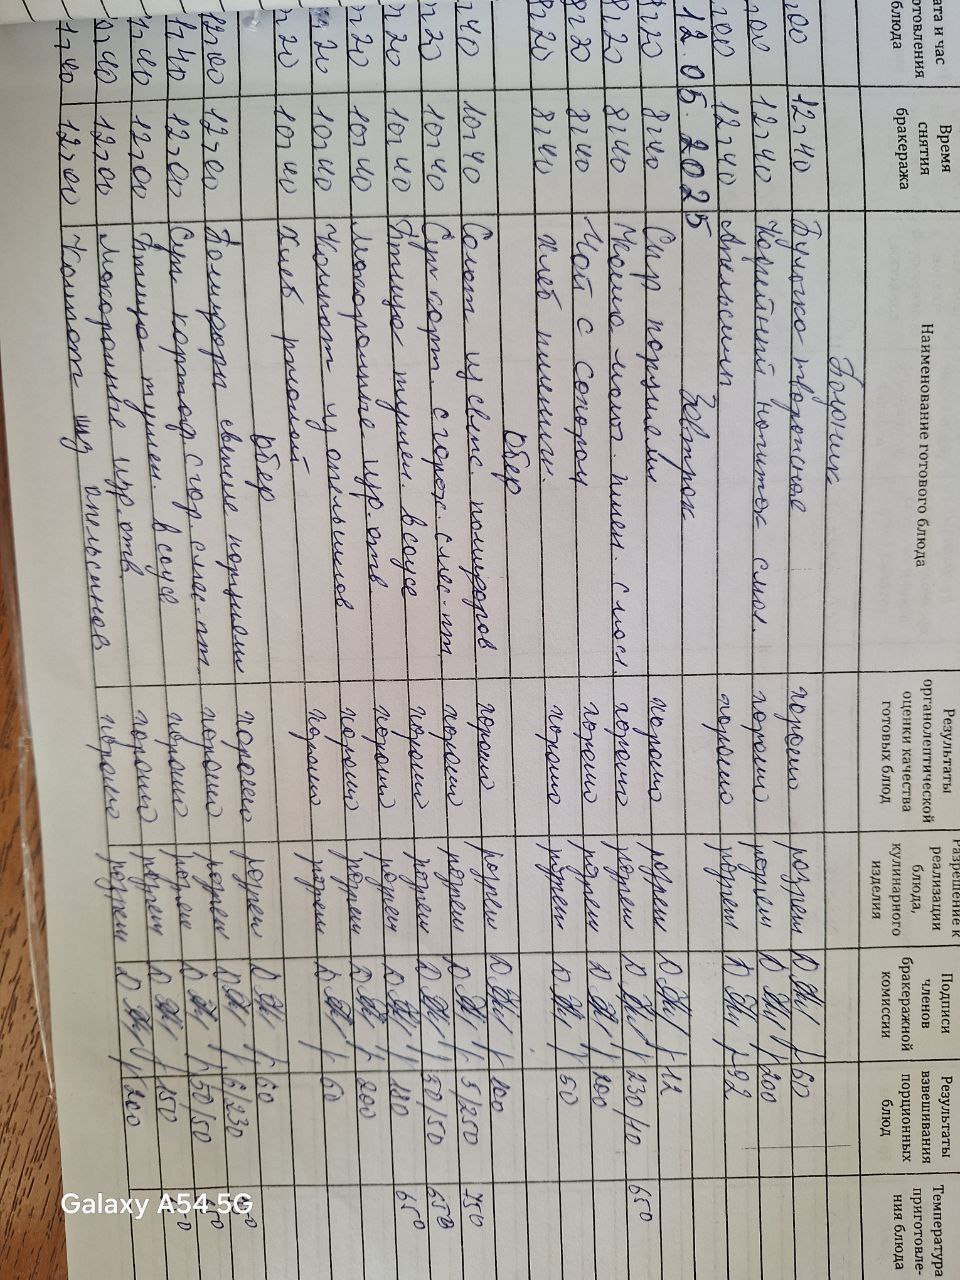 ата и час отовления блюда | Время снятия бракеража | Наименование готового блюда | Результаты органолептической оценки качества готовых блюд | Разрешение к реализации блюда, кулинарного изделия | Подписи членов бракеражной комиссии | Результаты взвешивания порционных блюд | Температура приготовле- ния блюда
Полдник
00 12-40 Булочка творожная хорошо разреш 60
00 12-40 Кофейный напиток с мол. хорошо разреш 200
00 12-40 Апельсин хорошо разреш 92
12.05.2025 Завтрак
8-20 8-40 Сыр порциями хорошо разреш 12
8-20 8-40 Каша мол. пшен. с масл хорошо разреш 230/10 65°
8-20 8-40 Чай с сахаром хорошо разреш 200
8-20 8-40 Хлеб пшенич. хорошо разреш 50
Обед
40 10-40 Салат из свеж. помидоров хорошо разреш 100
20 10-40 Суп карт. с горох. смес-пт хорошо разреш 5/250 75°
20 10-40 Птица тушен. в соусе хорошо разреш 50/50 65°
20 10-40 Макаронные изд. отв. хорошо разреш 180 65°
20 10-40 Компот из апельсинов хорошо разреш 200
20 10-40 Хлеб ржаной хорошо разреш 60
Обед
12-00 12-00 Помидоры свежие порциями хорошо разреш 60
11-40 12-00 Суп картоф. с гор. смес-пт. хорошо разреш 6/230
11-40 12-00 Птица тушен. в соусе хорошо разреш 50/50
11-40 12-00 Макаронные изд. отв. хорошо разреш 150
11-40 12-00 Компот из апельсинов хорошо разреш 200
Galaxy A54 5G